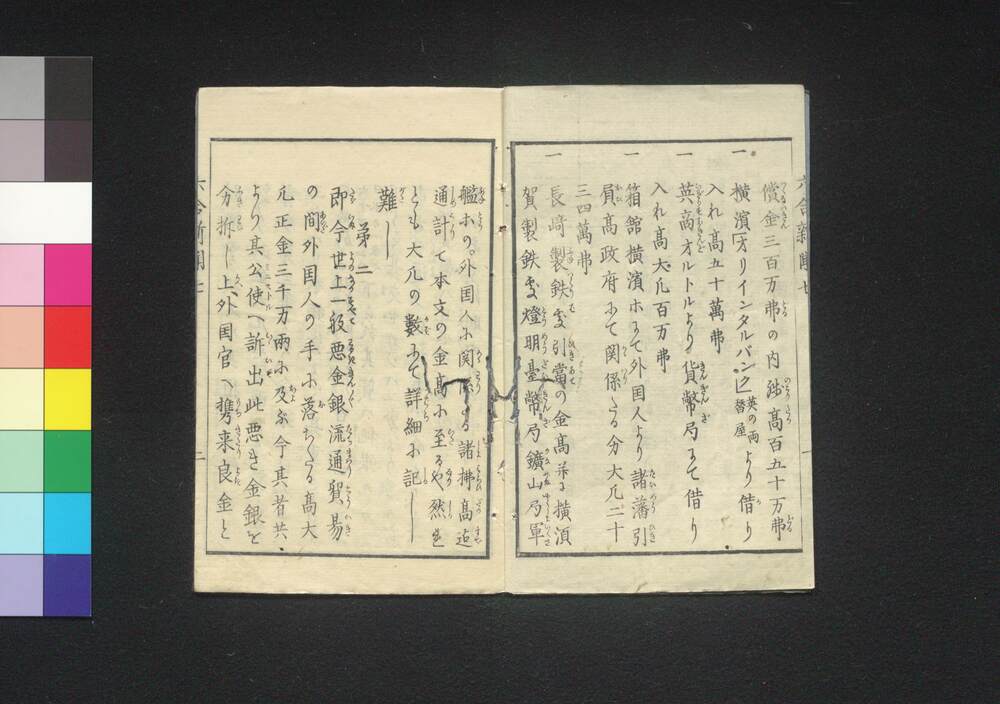 償金三百万弗の内渉高百五十万弗
一
横濱オリインタルバンク英の両替屋より借り
入れ高五十萬弗
一
英商オルトルより貨幣局にて借り
入れ高大凡百万弗
一
箱館横濱ホにて外国人より諸藩引
負高政府にて関係する分大凡二十
三四萬弗
一
長崎製鉄所引當の金高并に横須
賀製鉄所燈明臺幣局鑛山局軍
艦ホの外国人に関係する諸拂高迄
通計て本文の金高に至るや然れ
とも大凡の數にて詳細に記し
難し
第二
即今世上一般悪金銀流通貿易
の間外国人の手に落ちたる高大
凡正金三千万両に及ぶ今其者共
より其公使へ訴出此悪き金銀を
分拆し上外国官へ携来良金と
六合新聞七
二